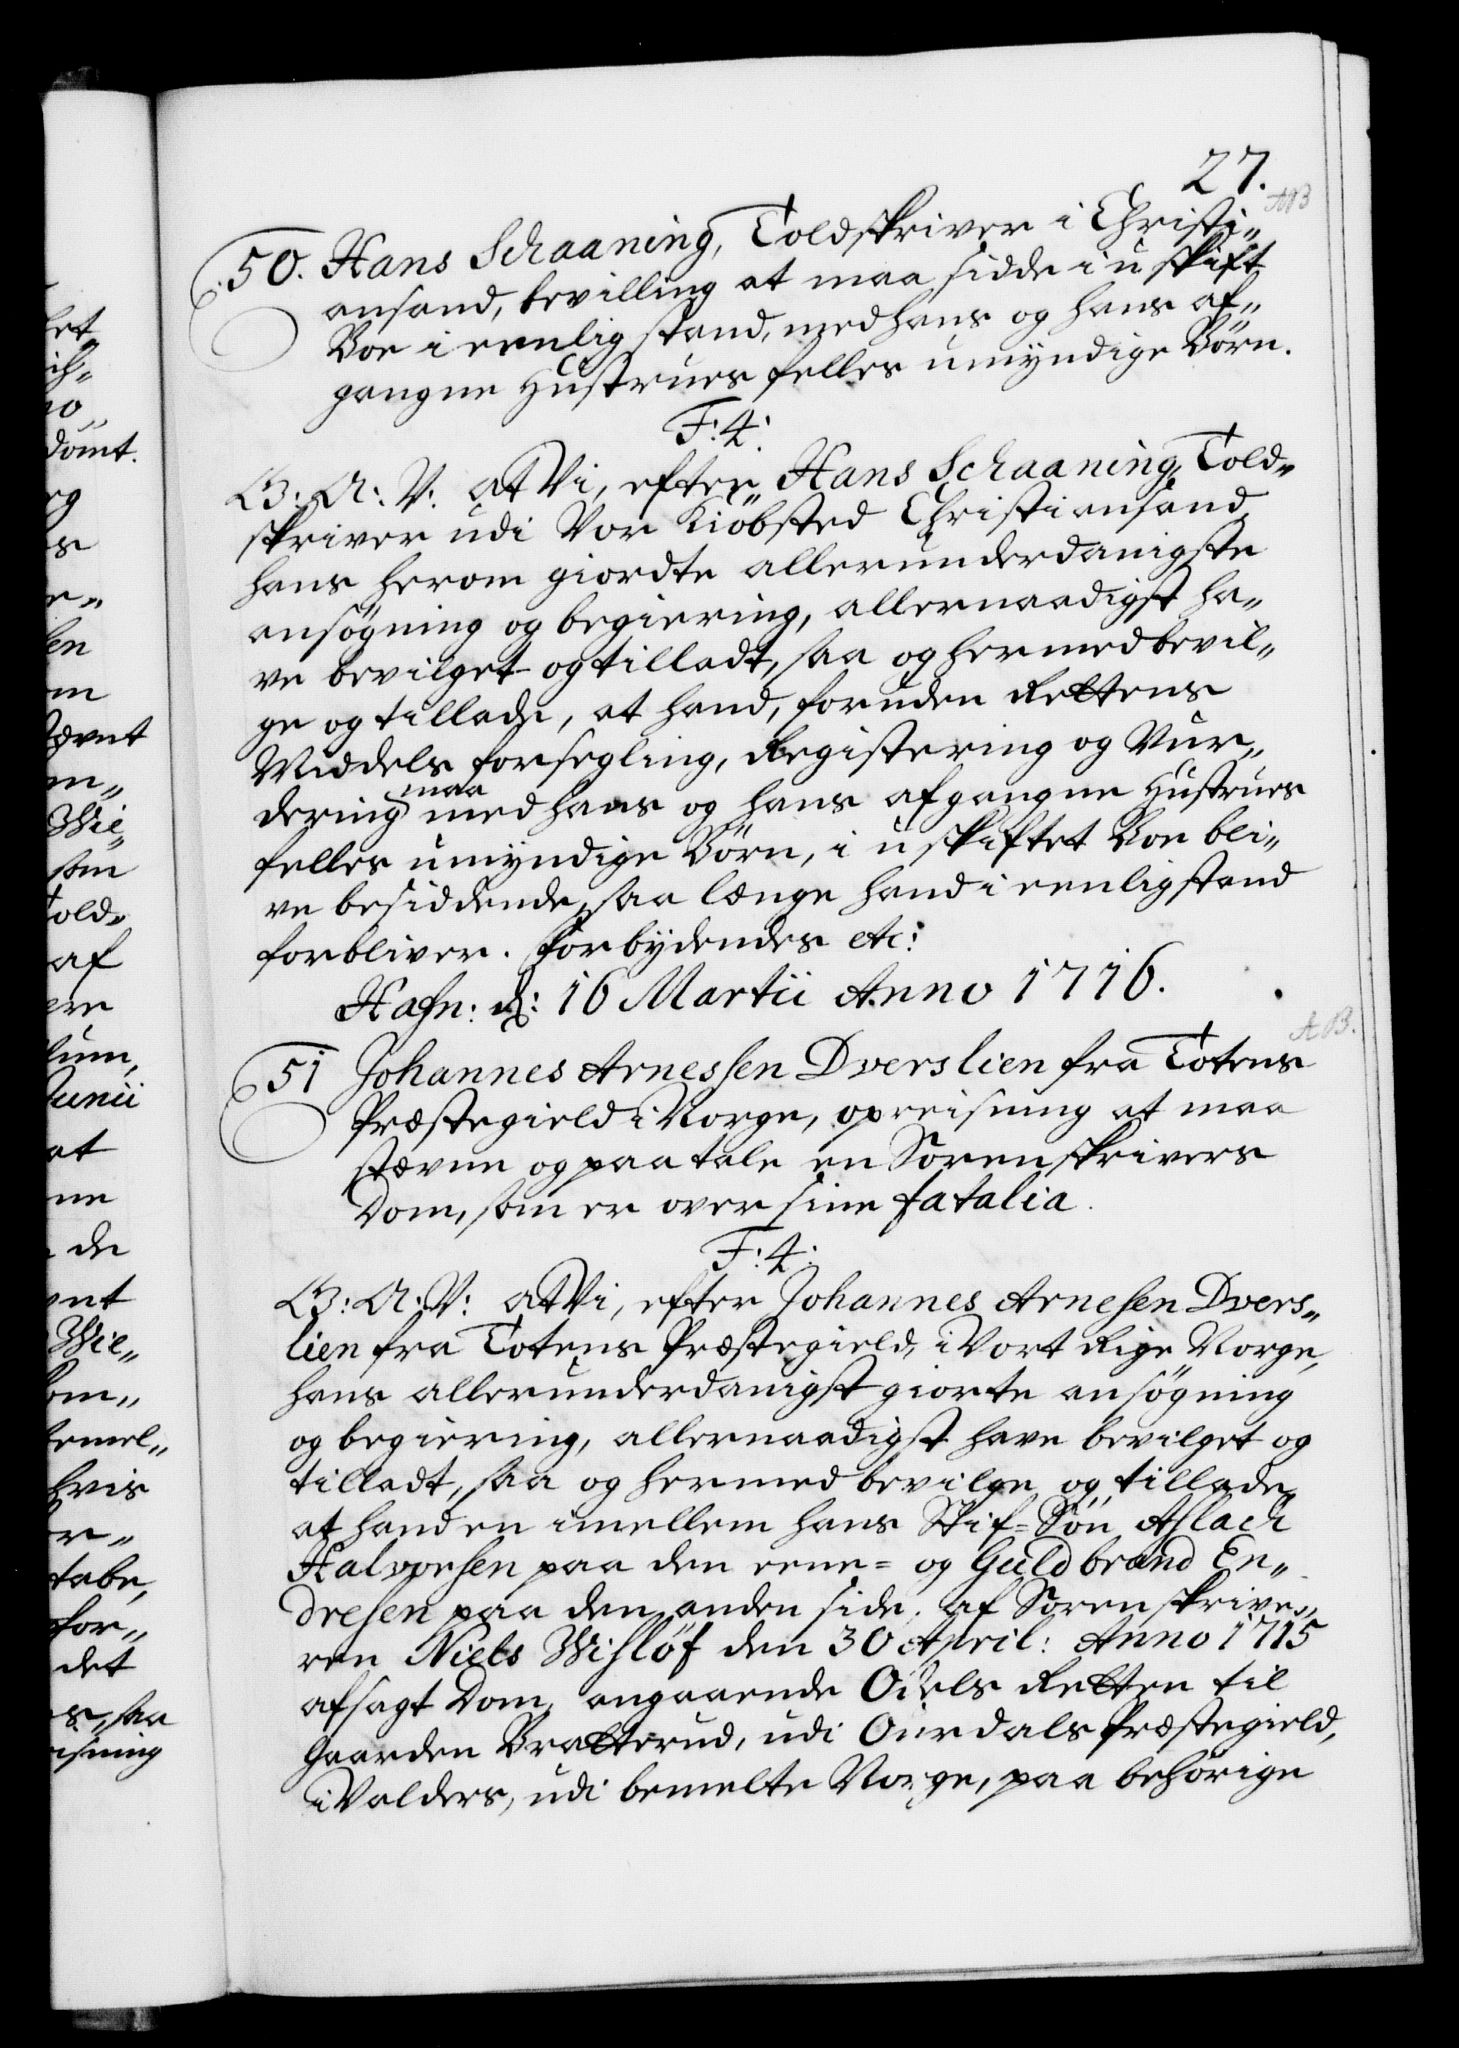 27.
AB
50. Hans Schaaning, Toldskriver i Christi„
ansand, bevilling at maa sidde i u skift
Boe i eenlig stand, med hans og hans af„
gangne Hustrues felles umyndige Börn.
F: 4:
G: A: V: at Vi, efter Hans Schaaning, Told„
skriver udi Vor Kiöbsted Christiansand,
hans herom giordte allerunderdanigste
ansögning og begiering, allernaadigst ha„
ve bevilget og tilladt, saa og hermed bevil„
ge og tillade, at hand, foruden Rettens
Middels forsegling, Registering og Vur„
dering maa med hans og hans afgangne Hustrues
felles umyndige Börn, i u skiftet Boe bli„
ve besiddende, saa længe hand i eenlig stand
forbliver. Forbydendes etc:
Hafn: d: 16 Martii Anno 1716.
AB.
51 Johannes Arnessen Dverslien fra Totens
Præstegield i Norge, opreisning at maa
stævne og paatale en Sorenskrivers
Dom, som er over sine fatalia.
F: 4:
G: A: V: at Vi, efter Johannes Arnesen Dvers„
lien fra Totens Præstegield, i Vort Rige Norge,
hans allerunderdanigst giorte ansögning
og begiering, allernaadigst have bevilget og
tilladt, saa og hermed bevilge og tillade,
at hand en imellem hans Stif-Sön Aslach
Halvorsen paa den eene- og Guldbrand En„
dresen paa den anden side, af Sorenskrive„
ren Niels Wislöf den 30 April: Anno 1715
afsagt Dom, angaaende Odels Retten til
Gaarden Bratterud, udi Ourdals Præstegield,
i Valders, udi bemelte Norge, paa behörige